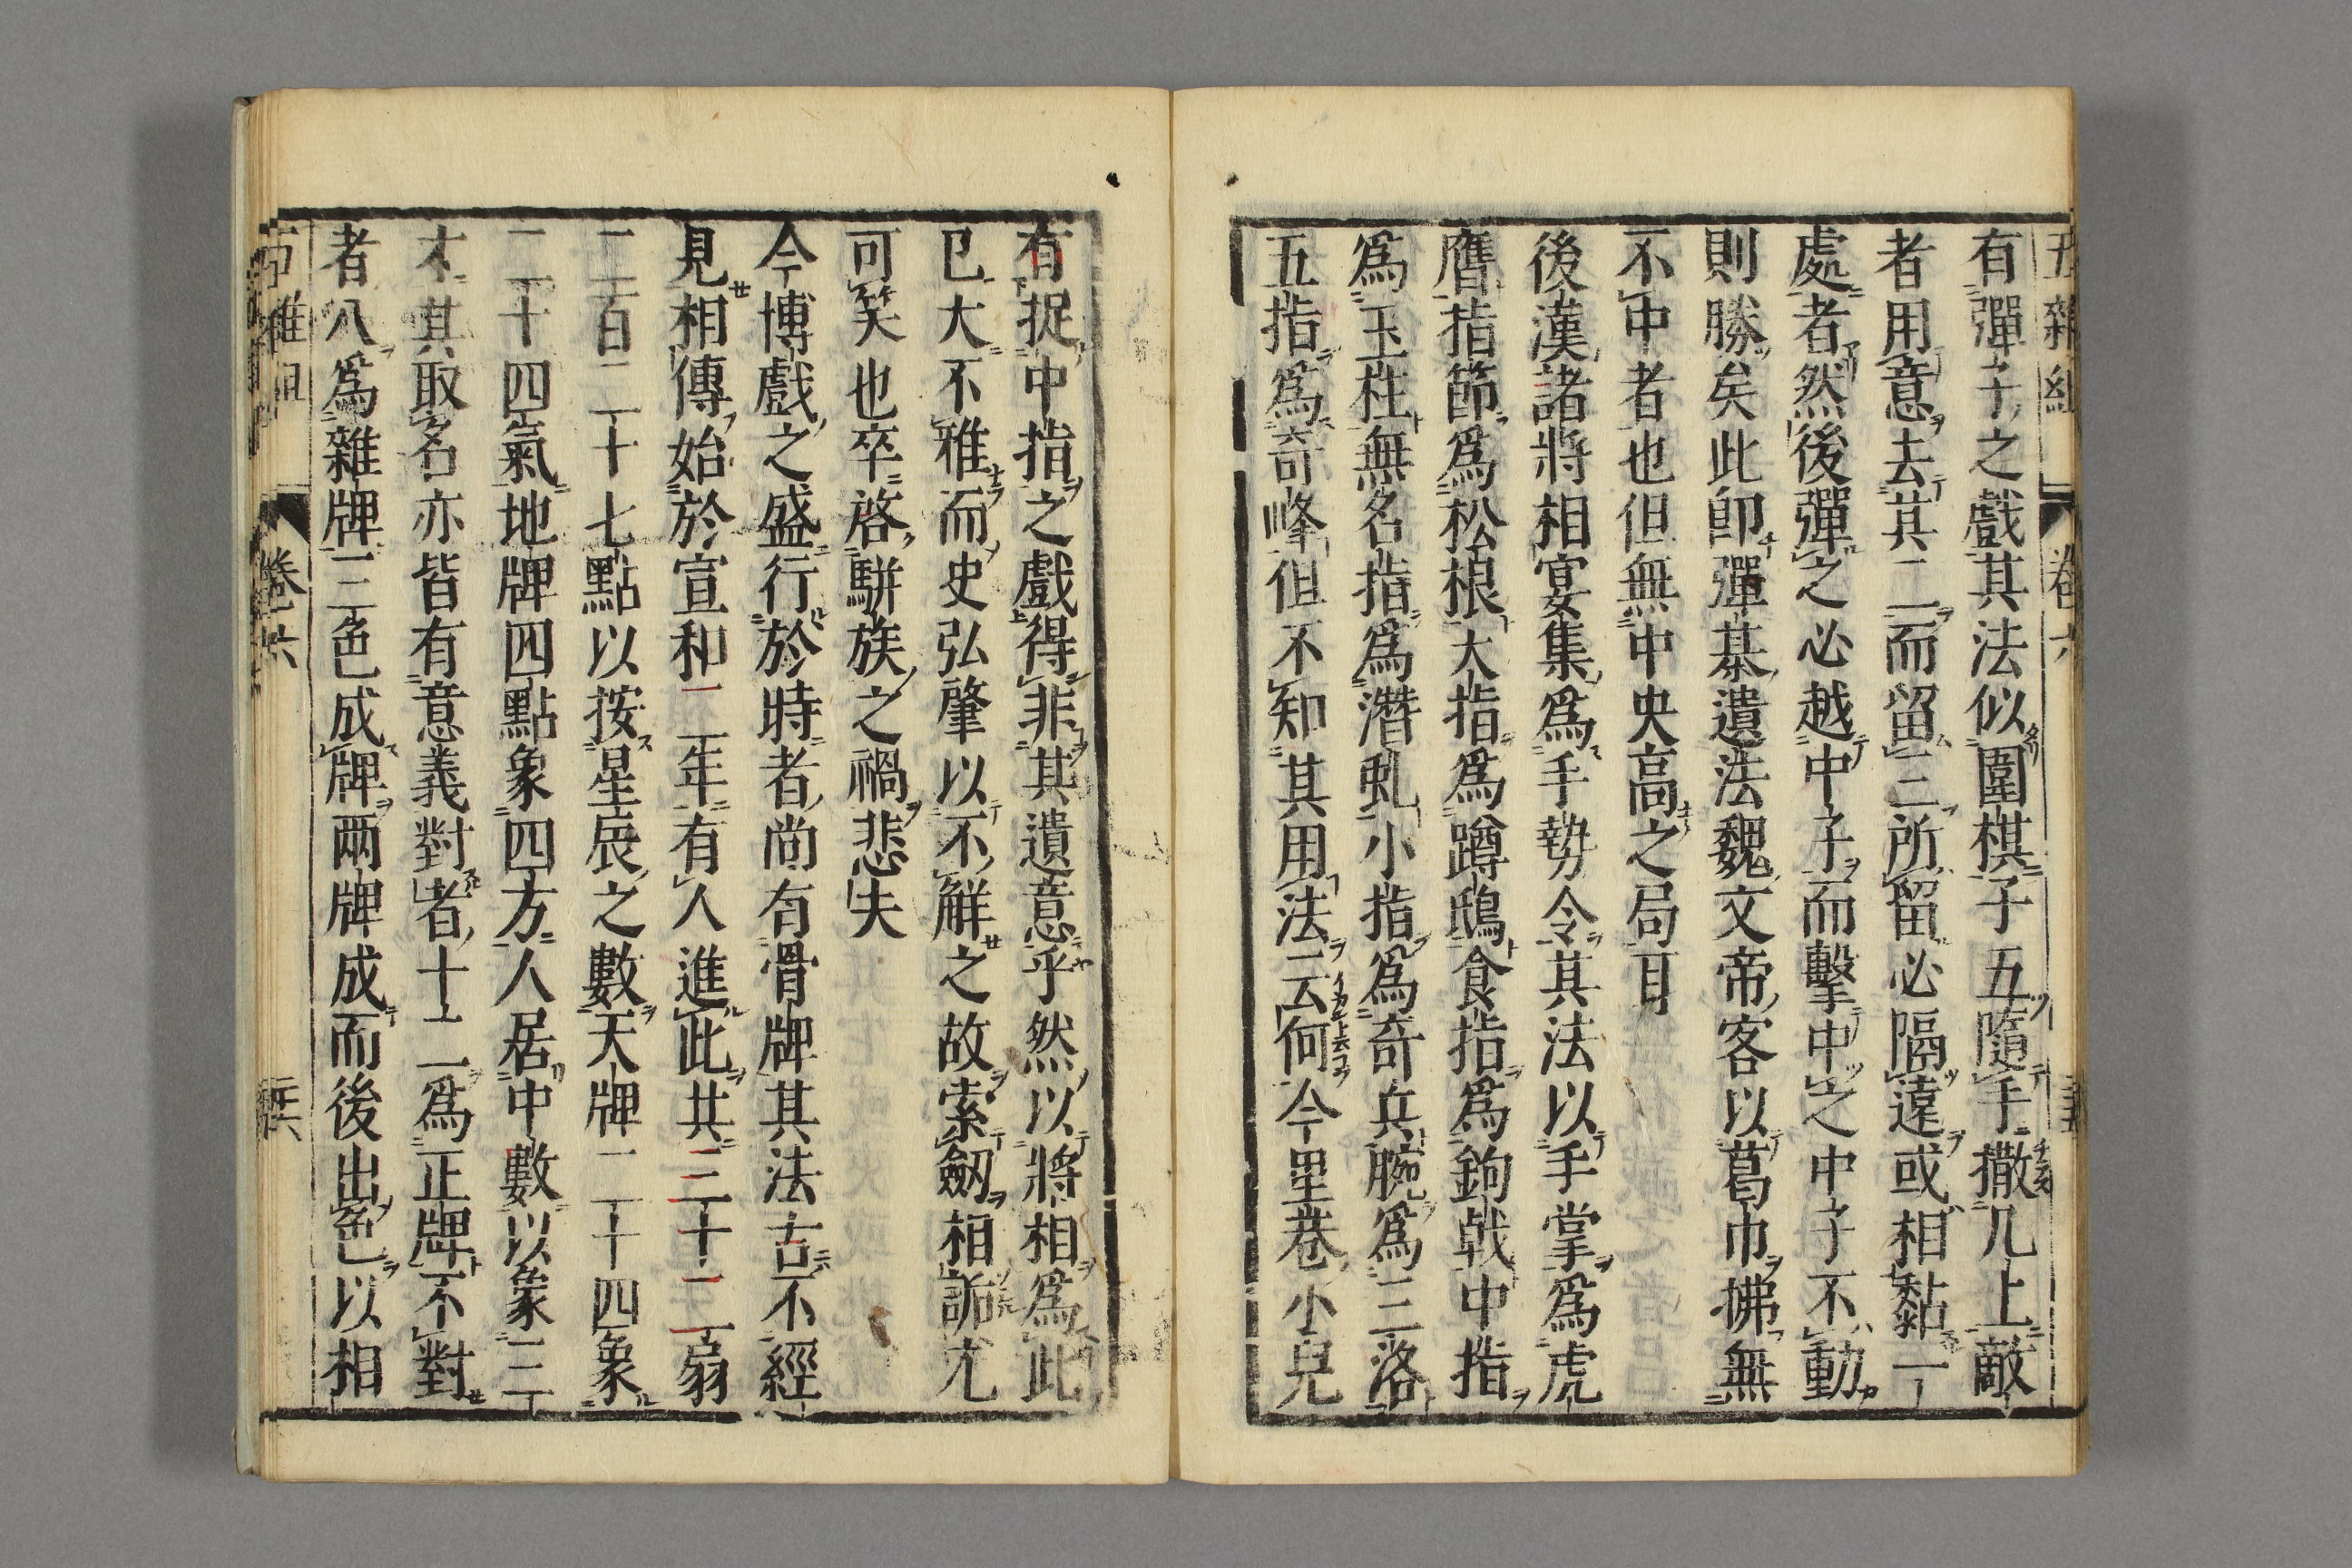 五雜組 卷六
有彈子之戲其法似圍棋子五隨手撒几上敵
者用意去其二而留三所留必隔遠或相黏一
處者然後彈之必越中子而擊中之中子不動
則勝矣此卽彈棊遺法魏文帝客以葛巾拂無
不中者也但無中央高之局耳
後漢諸將相宴集爲手勢令其法以手掌爲虎
膺指節爲松根大指爲蹲鴟食指爲鉤戟中指
爲玉柱無名指爲潛虬小指爲奇兵腕爲三洛
五指爲奇峰但不知其用法云何今里巷小兒
有捉中指之戲得非其遺意乎然以將相爲此
已大不雅而史弘肇以不解之故索劔相詬尤
可笑也卒啓駢族之禍悲夫
今博戲之盛行於時者尚有骨牌其法古不經
見相傳始於宣和二年有人進此共三十二扇
二百二十七點以按星辰之數天牌二十四象
二十四氣地牌四點象四方人居中數以象三
才其取名亦皆有意義對者十二爲正牌不對
者八爲雜牌三色成牌兩牌成而後出色以相
卷六